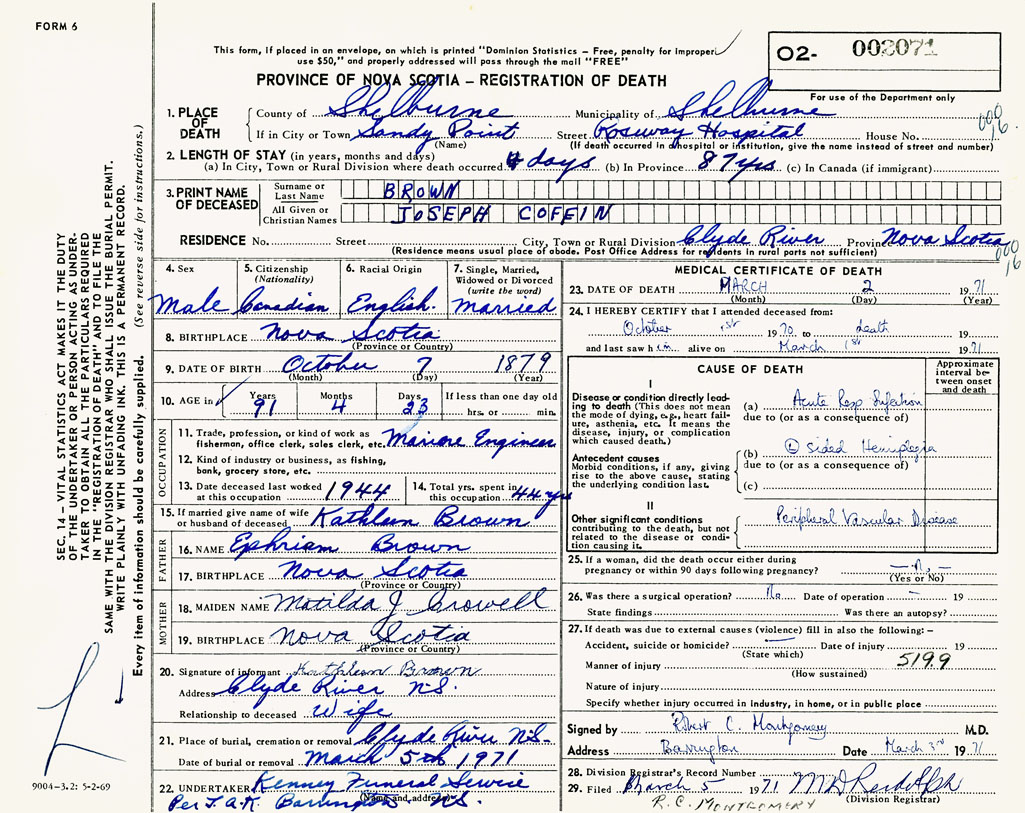 FORM 6
This form, if placed in an envelope, on which is printed "Dominion Statistics – Free, penalty for improper
use $50," and properly addressed will pass through the mail "FREE"
O2- 002071
For use of the Department only
PROVINCE OF NOVA SCOTIA – REGISTRATION OF DEATH
1. PLACE OF DEATH
County of Shelburne Municipality of Shelburne
If in City or Town Sandy Point Street Roseway Hospital House No.
(Name) (If death occurred in a hospital or institution, give the name instead of street and number)
2. LENGTH OF STAY (in years, months and days)
(a) In City, Town or Rural Division where death occurred 4 days (b) In Province 87 yrs (c) In Canada (if immigrant)
3. PRINT NAME OF DECEASED
Surname or Last Name BROWN
All Given or Christian Names JOSEPH COFFIN
RESIDENCE No. Street City, Town or Rural Division Clyde River Province Nova Scotia
(Residence means usual place of abode. Post Office Address for residents in rural ports not sufficient)
4. Sex Male
5. Citizenship (Nationality) Canadian
6. Racial Origin English.
7. Single, Married, Widowed or Divorced (write the word) Married
8. BIRTHPLACE Nova Scotia
(Province or Country)
9. DATE OF BIRTH October 7 1879
(Month) (Day) (Year)
10. AGE in Years 91 Months 4 Days 23 If less than one day old hrs. or min.
OCCUPATION
11. Trade, profession, or kind of work as fisherman, office clerk, sales clerk, etc. Marine Engineer
12. Kind of industry or business, as fishing, bank, grocery store, etc.
13. Date deceased last worked at this occupation 1944
14. Total yrs. spent in this occupation 44 yrs
15. If married give name of wife or husband of deceased Kathleen Brown
FATHER
16. NAME Ephriam Brown
17. BIRTHPLACE Nova Scotia
(Province or Country)
MOTHER
18. MAIDEN NAME Matilda J Crowell
19. BIRTHPLACE Nova Scotia
(Province or Country)
20. Signature of informant Kathleen Brown
Address Clyde River N.S.
Relationship to deceased Wife
21. Place of burial, cremation or removal Clyde River N.S.
Date of burial or removal March 5th 1971
22. UNDERTAKER Kenney Funeral Service
(Name and address)
Per T.A.K. Barrington N.S.
MEDICAL CERTIFICATE OF DEATH
23. DATE OF DEATH MARCH 2 1971
(Month) (Day) (Year)
24. I HEREBY CERTIFY that I attended deceased from:
October 1st 1970 to death 19
and last saw him alive on March 1st 1971
CAUSE OF DEATH
Approximate interval between onset and death
I
Disease or condition directly leading to death (This does not mean the mode of dying, e.g., heart failure, asthenia, etc. It means the disease, injury, or complication which caused death.)
(a) Acute Resp Infection
due to (or as a consequence of)
Antecedent causes
Morbid conditions, if any, giving rise to the above cause, stating the underlying condition last.
(b) sided Hemiplegia
due to (or as a consequence of)
(c)
II
Other significant conditions contributing to the death, but not related to the disease or condition causing it.
Peripheral Vascular Disease
25. If a woman, did the death occur either during pregnancy or within 90 days following pregnancy?
(Yes or No)
26. Was there a surgical operation? No Date of operation – 19
State findings Was there an autopsy?
27. If death was due to external causes (violence) fill in also the following: –
Accident, suicide or homicide? Date of injury 19
(State which)
Manner of injury 519.9
(How sustained)
Nature of injury
Specify whether injury occurred in industry, in home, or in public place
Signed by Robert C. Montgomery M.D.
Address Barrington Date March 3rd 1971
28. Division Registrar's Record Number
29. Filed March 5 1971
(Division Registrar)
R.C. MONTGOMERY
SEC. 14 – VITAL STATISTICS ACT MAKES IT THE DUTY
OF THE UNDERTAKER OR PERSON ACTING AS UNDER-
TAKER TO OBTAIN ALL THE PARTICULARS REQUIRED
IN THE "REGISTRATION OF DEATH" AND TO FILE THE
SAME WITH THE DIVISION REGISTRAR WHO SHALL ISSUE THE BURIAL PERMIT.
WRITE PLAINLY WITH UNFADING INK. THIS IS A PERMANENT RECORD.
Every item of information should be carefully supplied. (See reverse side for instructions.)
9004-3.2: 5-2-69